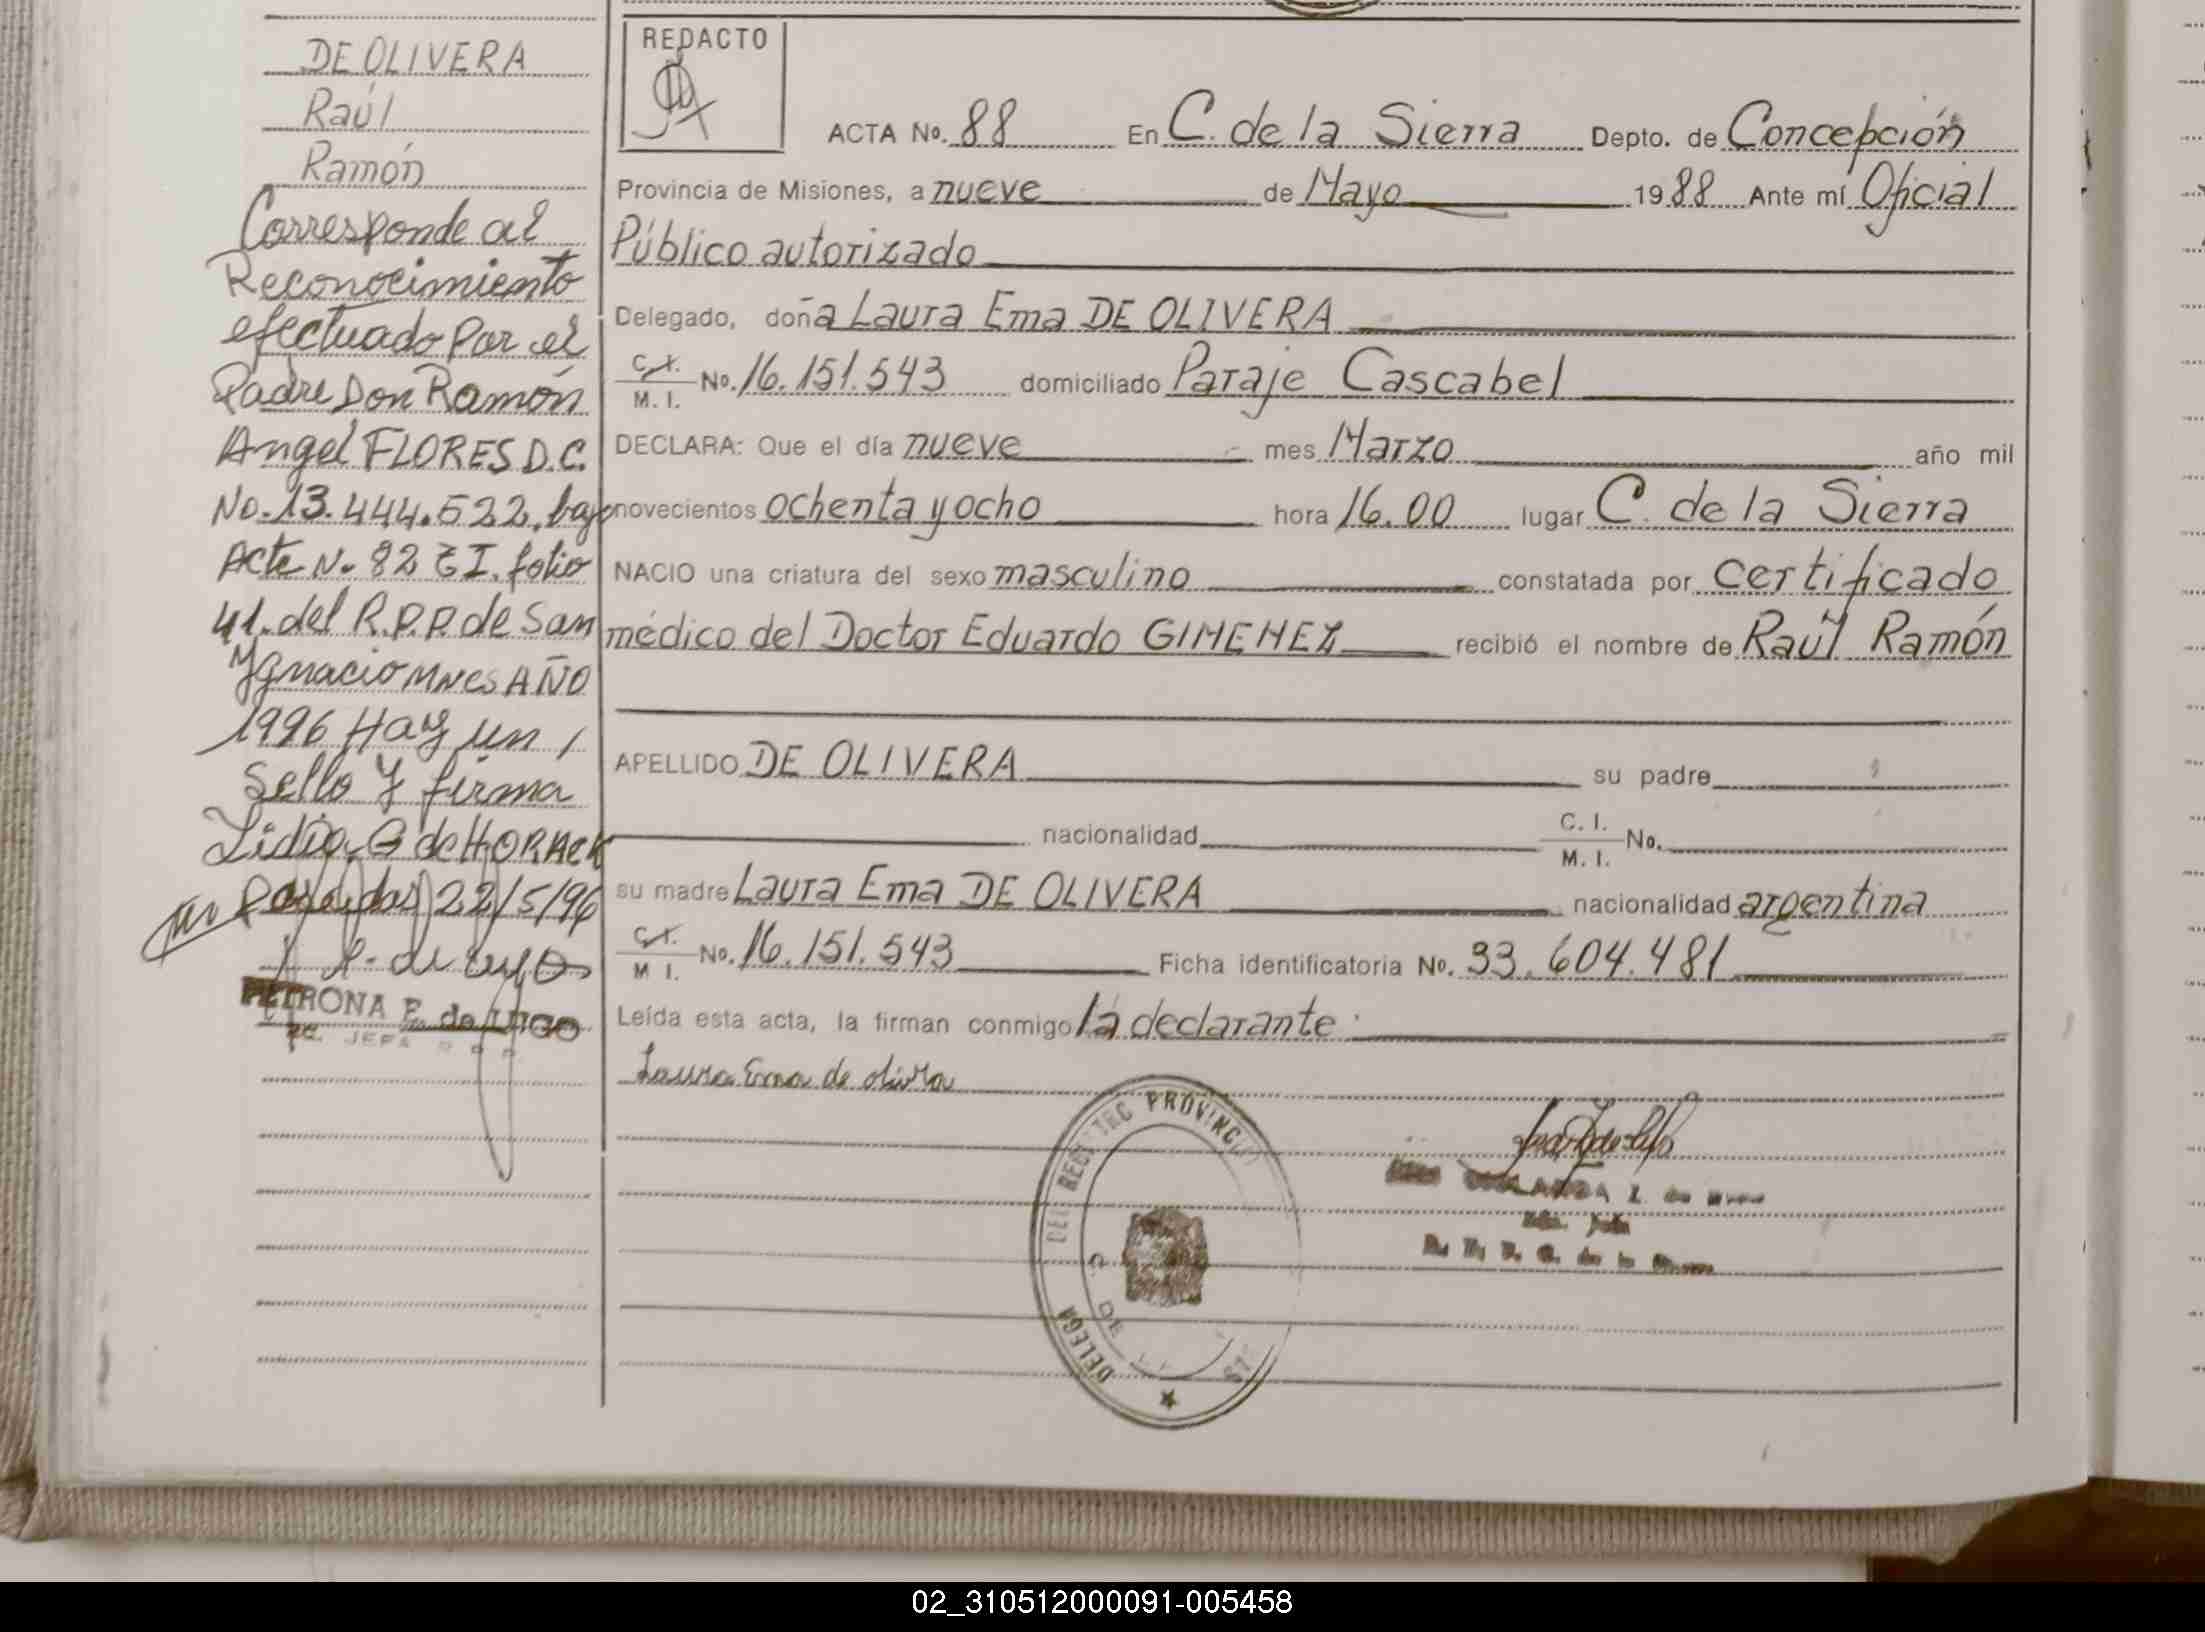 DE OLIVERA
Raúl
Ramón
Corresponde al
Reconocimiento
efectuado Por el
Padre Don Ramón
Angel FLORES D.C.
No. 13.444.522, bajo
Acta N. 82 TI. folio
41. del R.P.P. de San
Ygnacio Mnes AÑO
1996 Hay un
Sello y firma
Lidia G de HORACK
Posadas 22/5/96
PETRONA E. de LUGO
JEFA
REDACTO
ACTA No. 88 En C. de la Sierra Depto. de Concepción
Provincia de Misiones, a nueve de Mayo 1988 Ante mí Oficial
Público autorizado
Delegado, doña Laura Ema DE OLIVERA
C.I. M.I. No. 16.151.543 domiciliado Paraje Cascabel
DECLARA: Que el día nueve mes Marzo año mil
novecientos ochenta y ocho hora 16.00 lugar C. de la Sierra
NACIO una criatura del sexo masculino constatada por certificado
médico del Doctor Eduardo GIMENEZ recibió el nombre de Raúl Ramón
APELLIDO DE OLIVERA su padre
nacionalidad C. I. M. I. No.
su madre Laura Ema DE OLIVERA nacionalidad argentina
C.I. M I. No. 16.151.543 Ficha identificatoria No. 33.604.481
Leída esta acta, la firman conmigo la declarante:
Laura Ema de olivra
DELEGA DEL REGISTRO PROVINCIAL
DE
02_310512000091-005458